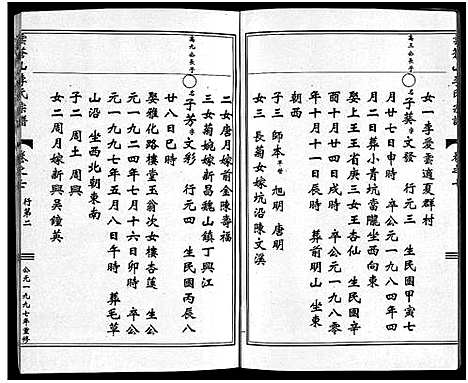 萬三公長子
女一李受雲適夏群村
名子葵 字文發 行元 生民國甲寅七
月二日 葬小青坑當隴坐西向東
娶上王王省庚三女王杏仙 生民國辛
亥十月十一日時 卒公元一九八〇年
十月十日時 葬前明山 坐東
朝西
子三 師本早世 旭明 唐明
女三 長菊女嫁坑沿陳文溪
萬九公長子
二女唐月嫁前金陳壽福
三女菊婉嫁新昌魏山鎮丁興江
名子芳 字文彩 行元四 生民國丙辰八
廿八日巳時
娶雅化路樓堂玉翁次女杏蓮 生公
元一九二四年十月十六日卯時 卒公
元一九九七年五月八日午時 葬毛草
山沿 坐西北朝東南
女二周月嫁新興吳鐘英
行第二
公元一九九七年重修